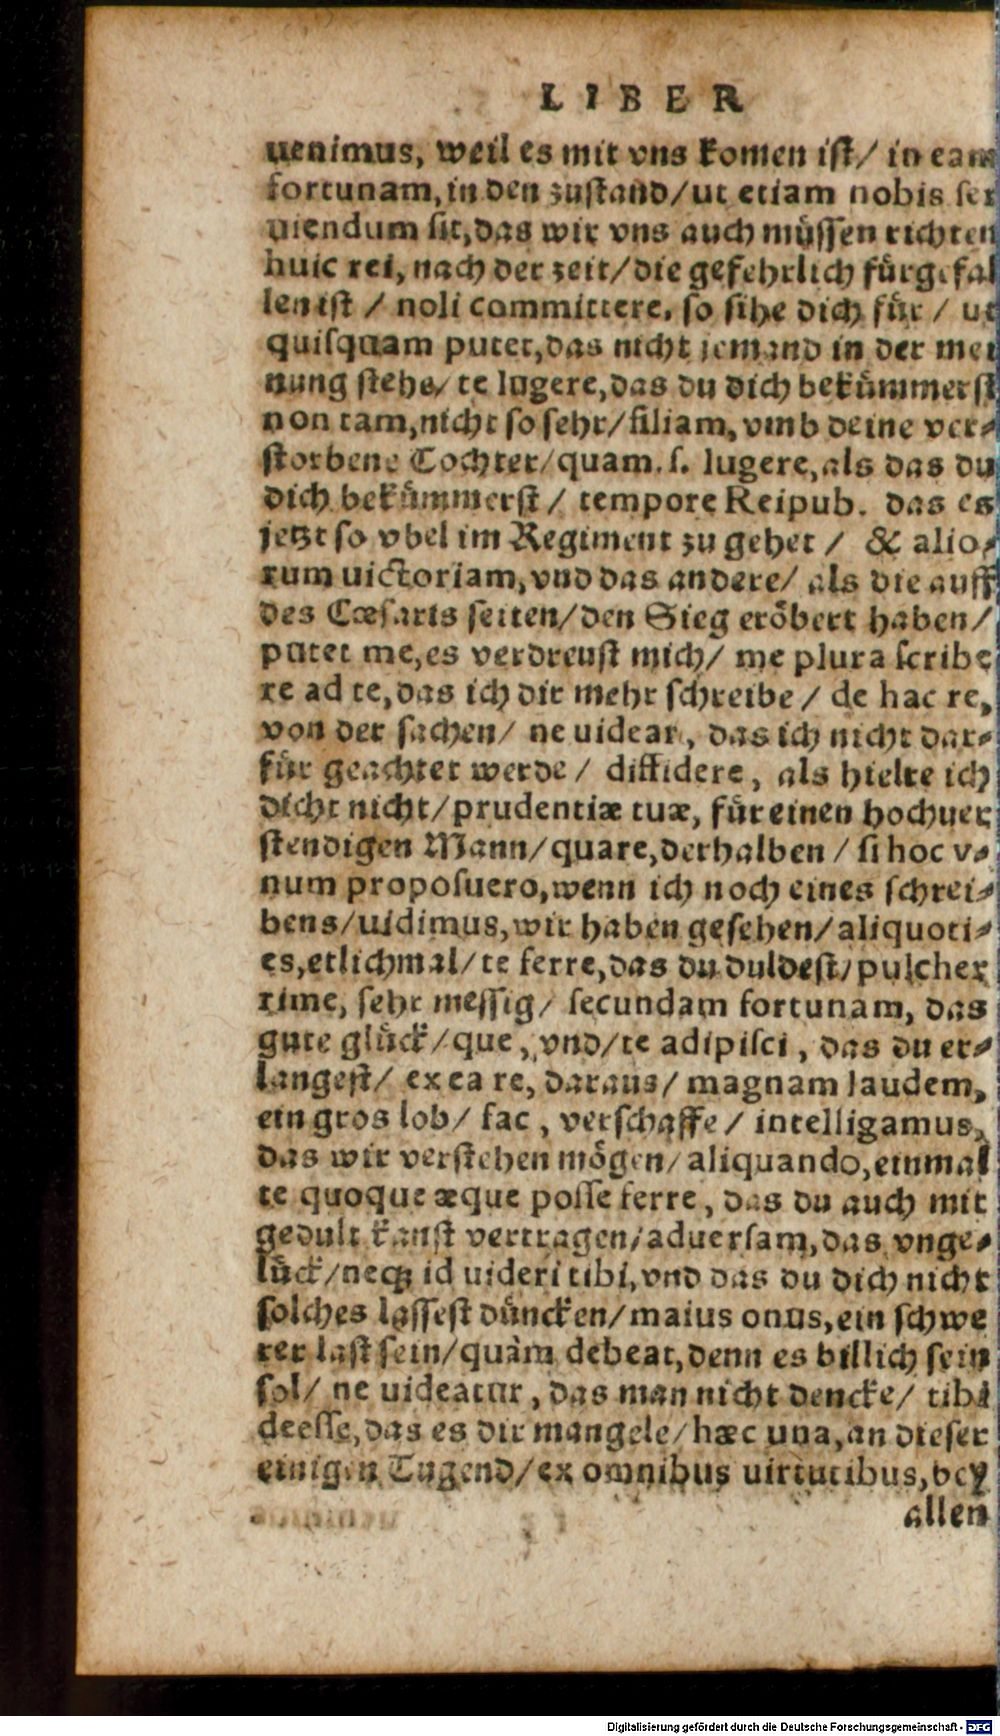 LIBER
uenimus, weil es mit vns komen ist/ in eam
fortunam, in den zustand/ut etiam nobis ser
uiendum sit, das wir vns auch müssen richten
huic rei, nach der zeit/die gefehrlich fürgefal
len ist / noli committere, so sihe dich für / ut
quisquam putet, das nicht jemand in der mei
nung stehe/ te lugere, das du dich bekümmerst
non tam, nicht so sehr/filiam, vmb deine ver⸗
storbene Tochter/quam. s. lugere, als das du
dich bekümmerst / tempore Reipub. das es
jetzt so vbel im Regiment zu gehet / & alio⸗
rum uictoriam, vnd das andere/ als die auff
des Cæsaris seiten/den Sieg eröbert haben/
putet me, es verdreust mich/ me plura scribe
re ad te, das ich dir mehr schreibe / de hac re,
von der sachen/ ne uidear, das ich nicht dar⸗
für geachtet werde / diffidere, als hielte ich
dicht nicht/prudentiæ tuæ, für einen hochuer
stendigen Mann/quare, derhalben / si hoc v⸗
num proposuero, wenn ich noch eines schrei⸗
bens/uidimus, wir haben gesehen/aliquoti⸗
es, etlichmal/te ferre, das du duldest/pulcher
rime, sehr messig/ secundam fortunam, das
gute glück/que, vnd/te adipisci, das du er⸗
langest/ ex ea re, daraus/ magnam laudem,
ein gros lob/ fac, verschaffe / intelligamus,
das wir verstehen mögen/aliquando, einmal
te quoque æque posse ferre, das du auch mit
gedult kanst vertragen/aduersam, das vnge⸗
lück/neq; id uideri tibi, vnd das du dich nicht
solches lassest düncken/maius onus, ein schwe
rer last sein/quàm debeat, denn es billich sein
sol/ ne uideatur, das man nicht dencke/ tibi
deesse, das es dir mangele/hæc una, an dieser
einigen Tugend/ex omnibus uirtutibus, bey
allen
Digitalisierung gefördert durch die Deutsche Forschungsgemeinschaft - DFG